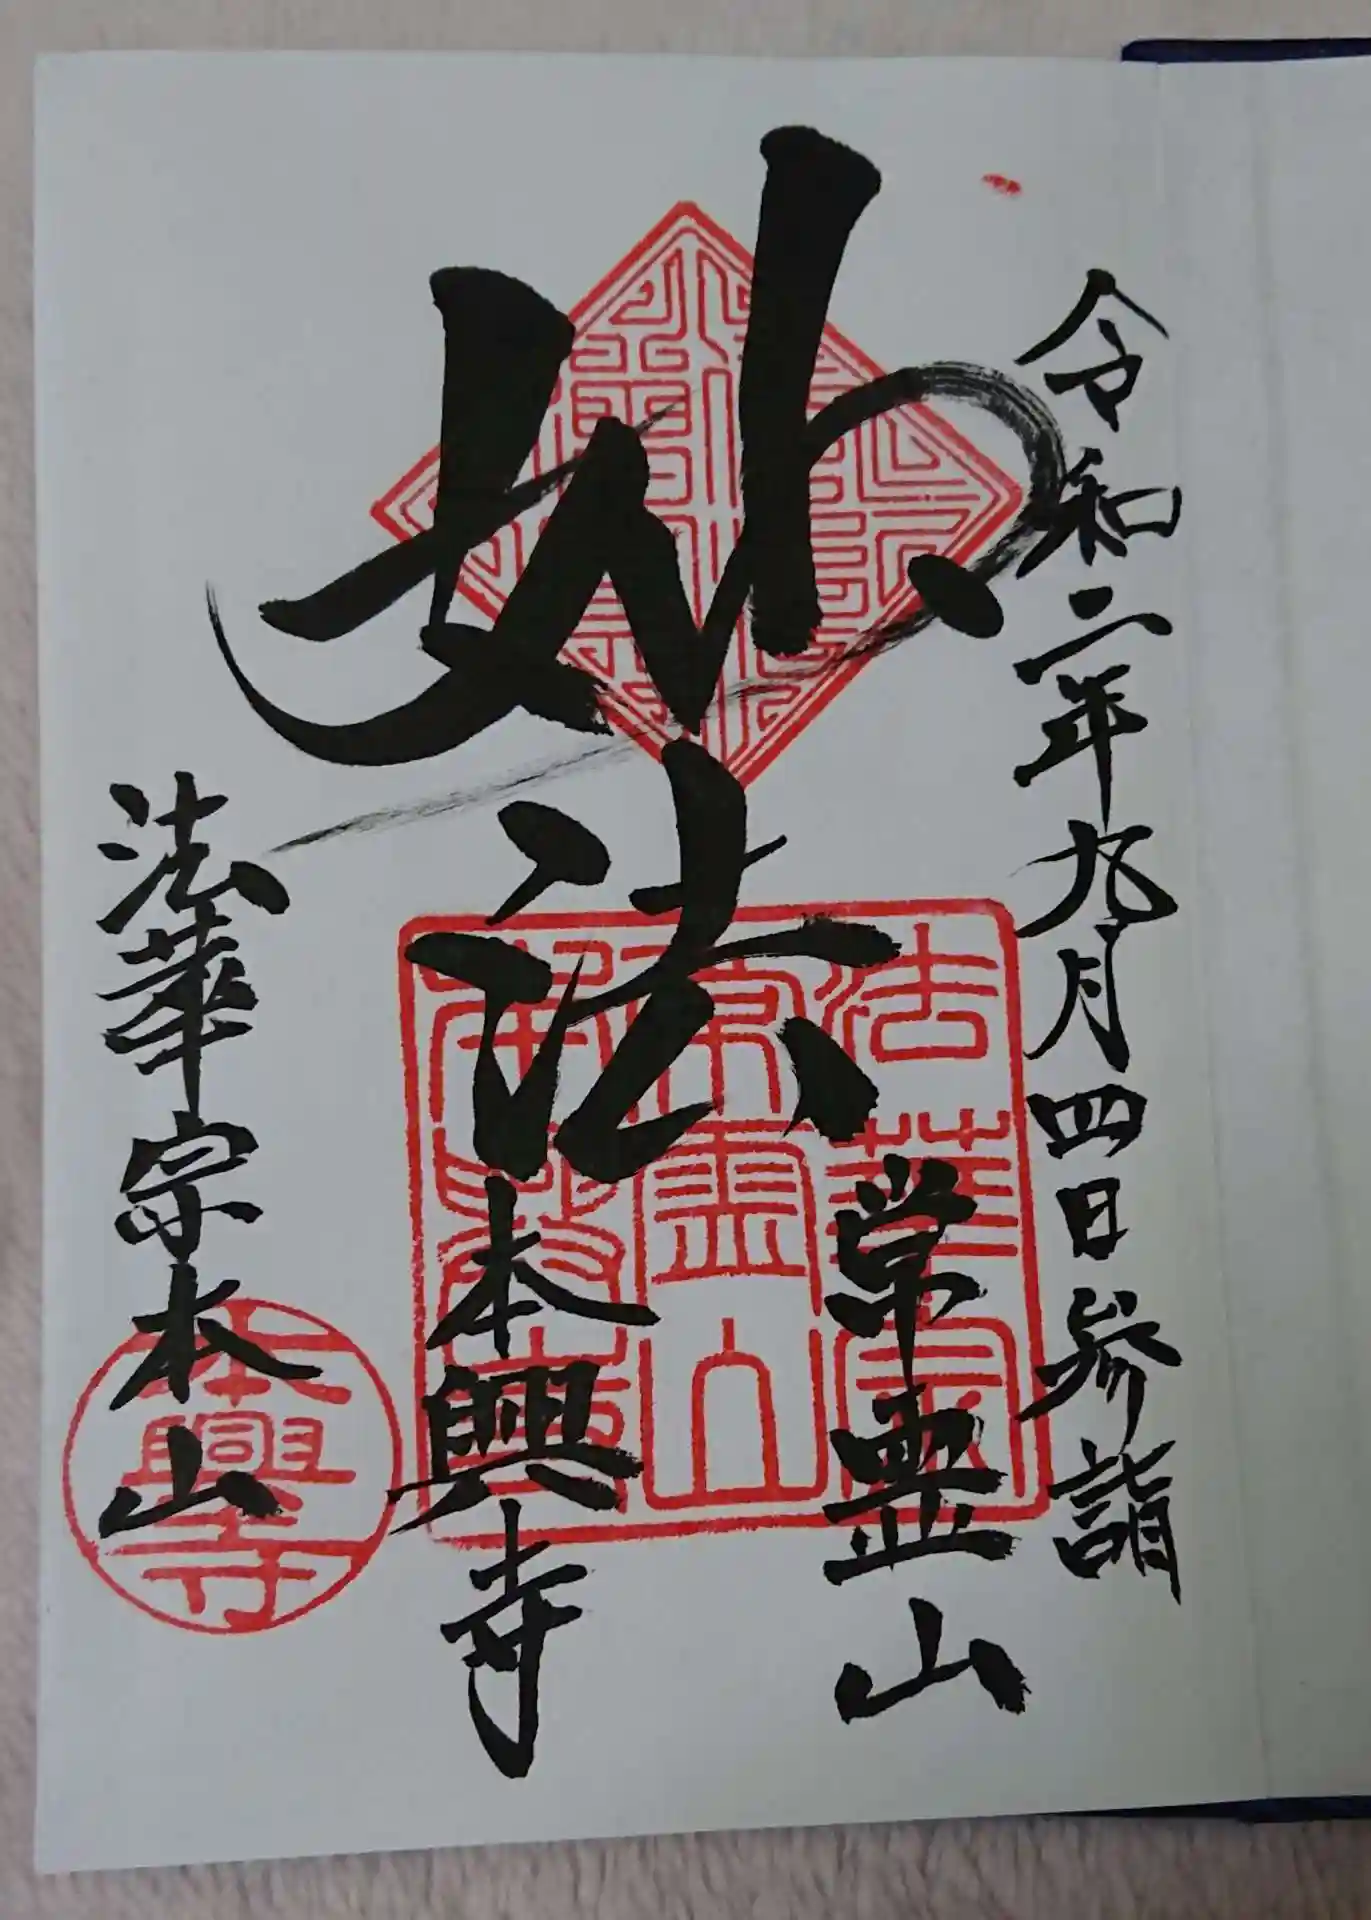 令和二年九月四日参詣
妙法
常霊山
本興寺
法華宗本山
法華宗
常霊山
本興寺